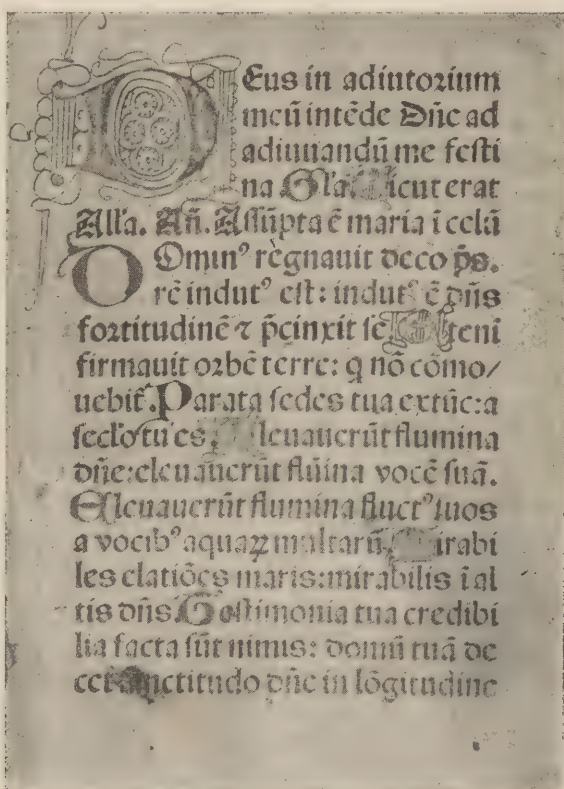 DEus in adiutorium
meū intēde Dñe ad
adiuuandū me festi
na Gl'a. Sicut erat
All'a. Añ. Assūpta ē maria ī celū
DOminꝰ regnauit deco ps.
rē indutꝰ est: indutꝰ ē dñs
fortitudinē ⁊ p̄cinxit se. Eteni
firmauit orbē terre: q nō cōmo/
uebit̄. Parata sedes tua extūc: a
seclo tu es. Eleuauerūt flumina
dñe: eleuauerūt flūina vocē suā.
Eleuauerūt flumina fluctꝰ suos
a vocibꝰ aquaꝝ multarū. Mirabi
les elatiōes maris: mirabilis ī al
tis dñs. Testimonia tua credibi
lia facta sūt nimis: domū tuā de
cet sanctitudo dñe in lōgitudine